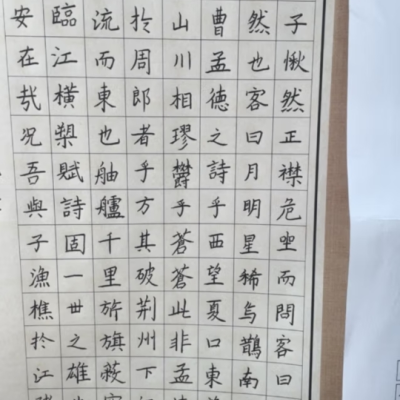 子愀然正襟危坐而問客曰
然也客曰月明星稀烏鵲南
曹孟德之詩乎西望夏口東
山川相繆鬱乎蒼蒼此非孟
於周郎者乎方其破荊州下
流而東也舳艫千里旌旗蔽
臨江橫槊賦詩固一世之雄
安在哉況吾與子漁樵於江